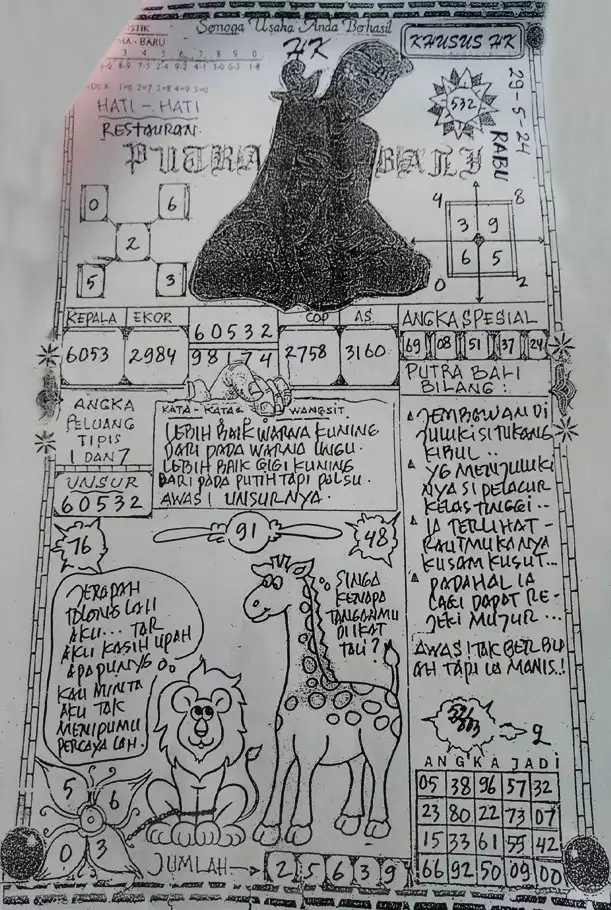 Semoga Usaha Anda Berhasil
HK
KHUSUS HK
29-5-24
RABU
532
HATI - HATI
RESTAURAN.
PUTRA BALI
0 6
2
5 3
4 8
3 9
6 5
0 2
KEPALA EKOR
6053 2984
60532
98174
COP AS
2758 3160
ANGKA SPESIAL
69 08 51 37 24
ANGKA
PELUANG
TIPIS
1 DAN 7
UNSUR
60532
KATA - KATA WANGSIT.
LEBIH BAIK WARNA KUNING
DARI PADA WARNA UNGU.
LEBIH BAIK GIGI KUNING
DARI PADA PUTIH TAPI PALSU.
AWAS! UNSURNYA.
PUTRA BALI
BILANG:
JEMBAWAN DI
JULUKI SI TUKANG
KIBUL..
YG MENJULUKI
NYA SI PELACUR
KELAS TINGGI..
IA TERLIHAT -
RAUT MUKANYA
KUSAM KUSUT...
PADAHAL IA
LAGI DAPAT RE-
JEKI MUJUR...
AWAS! TAK BERBU
AH TAPI IA MANIS..!
76
91
48
JERAPAH
TOLONG LAH
AKU... TAR
AKU KASIH UPAH
APA PUN YG
KAU MINTA
AKU TAK
MENIPUMU
PERCAYA LAH.
SINGA
KENAPA
TANGANMU
DI IKAT
TALI?
2
ANGKA JADI
05 38 96 57 32
23 80 22 73 07
15 33 61 55 42
66 92 50 09 00
5 6
0 3
JUMLAH 2 5 6 3 9